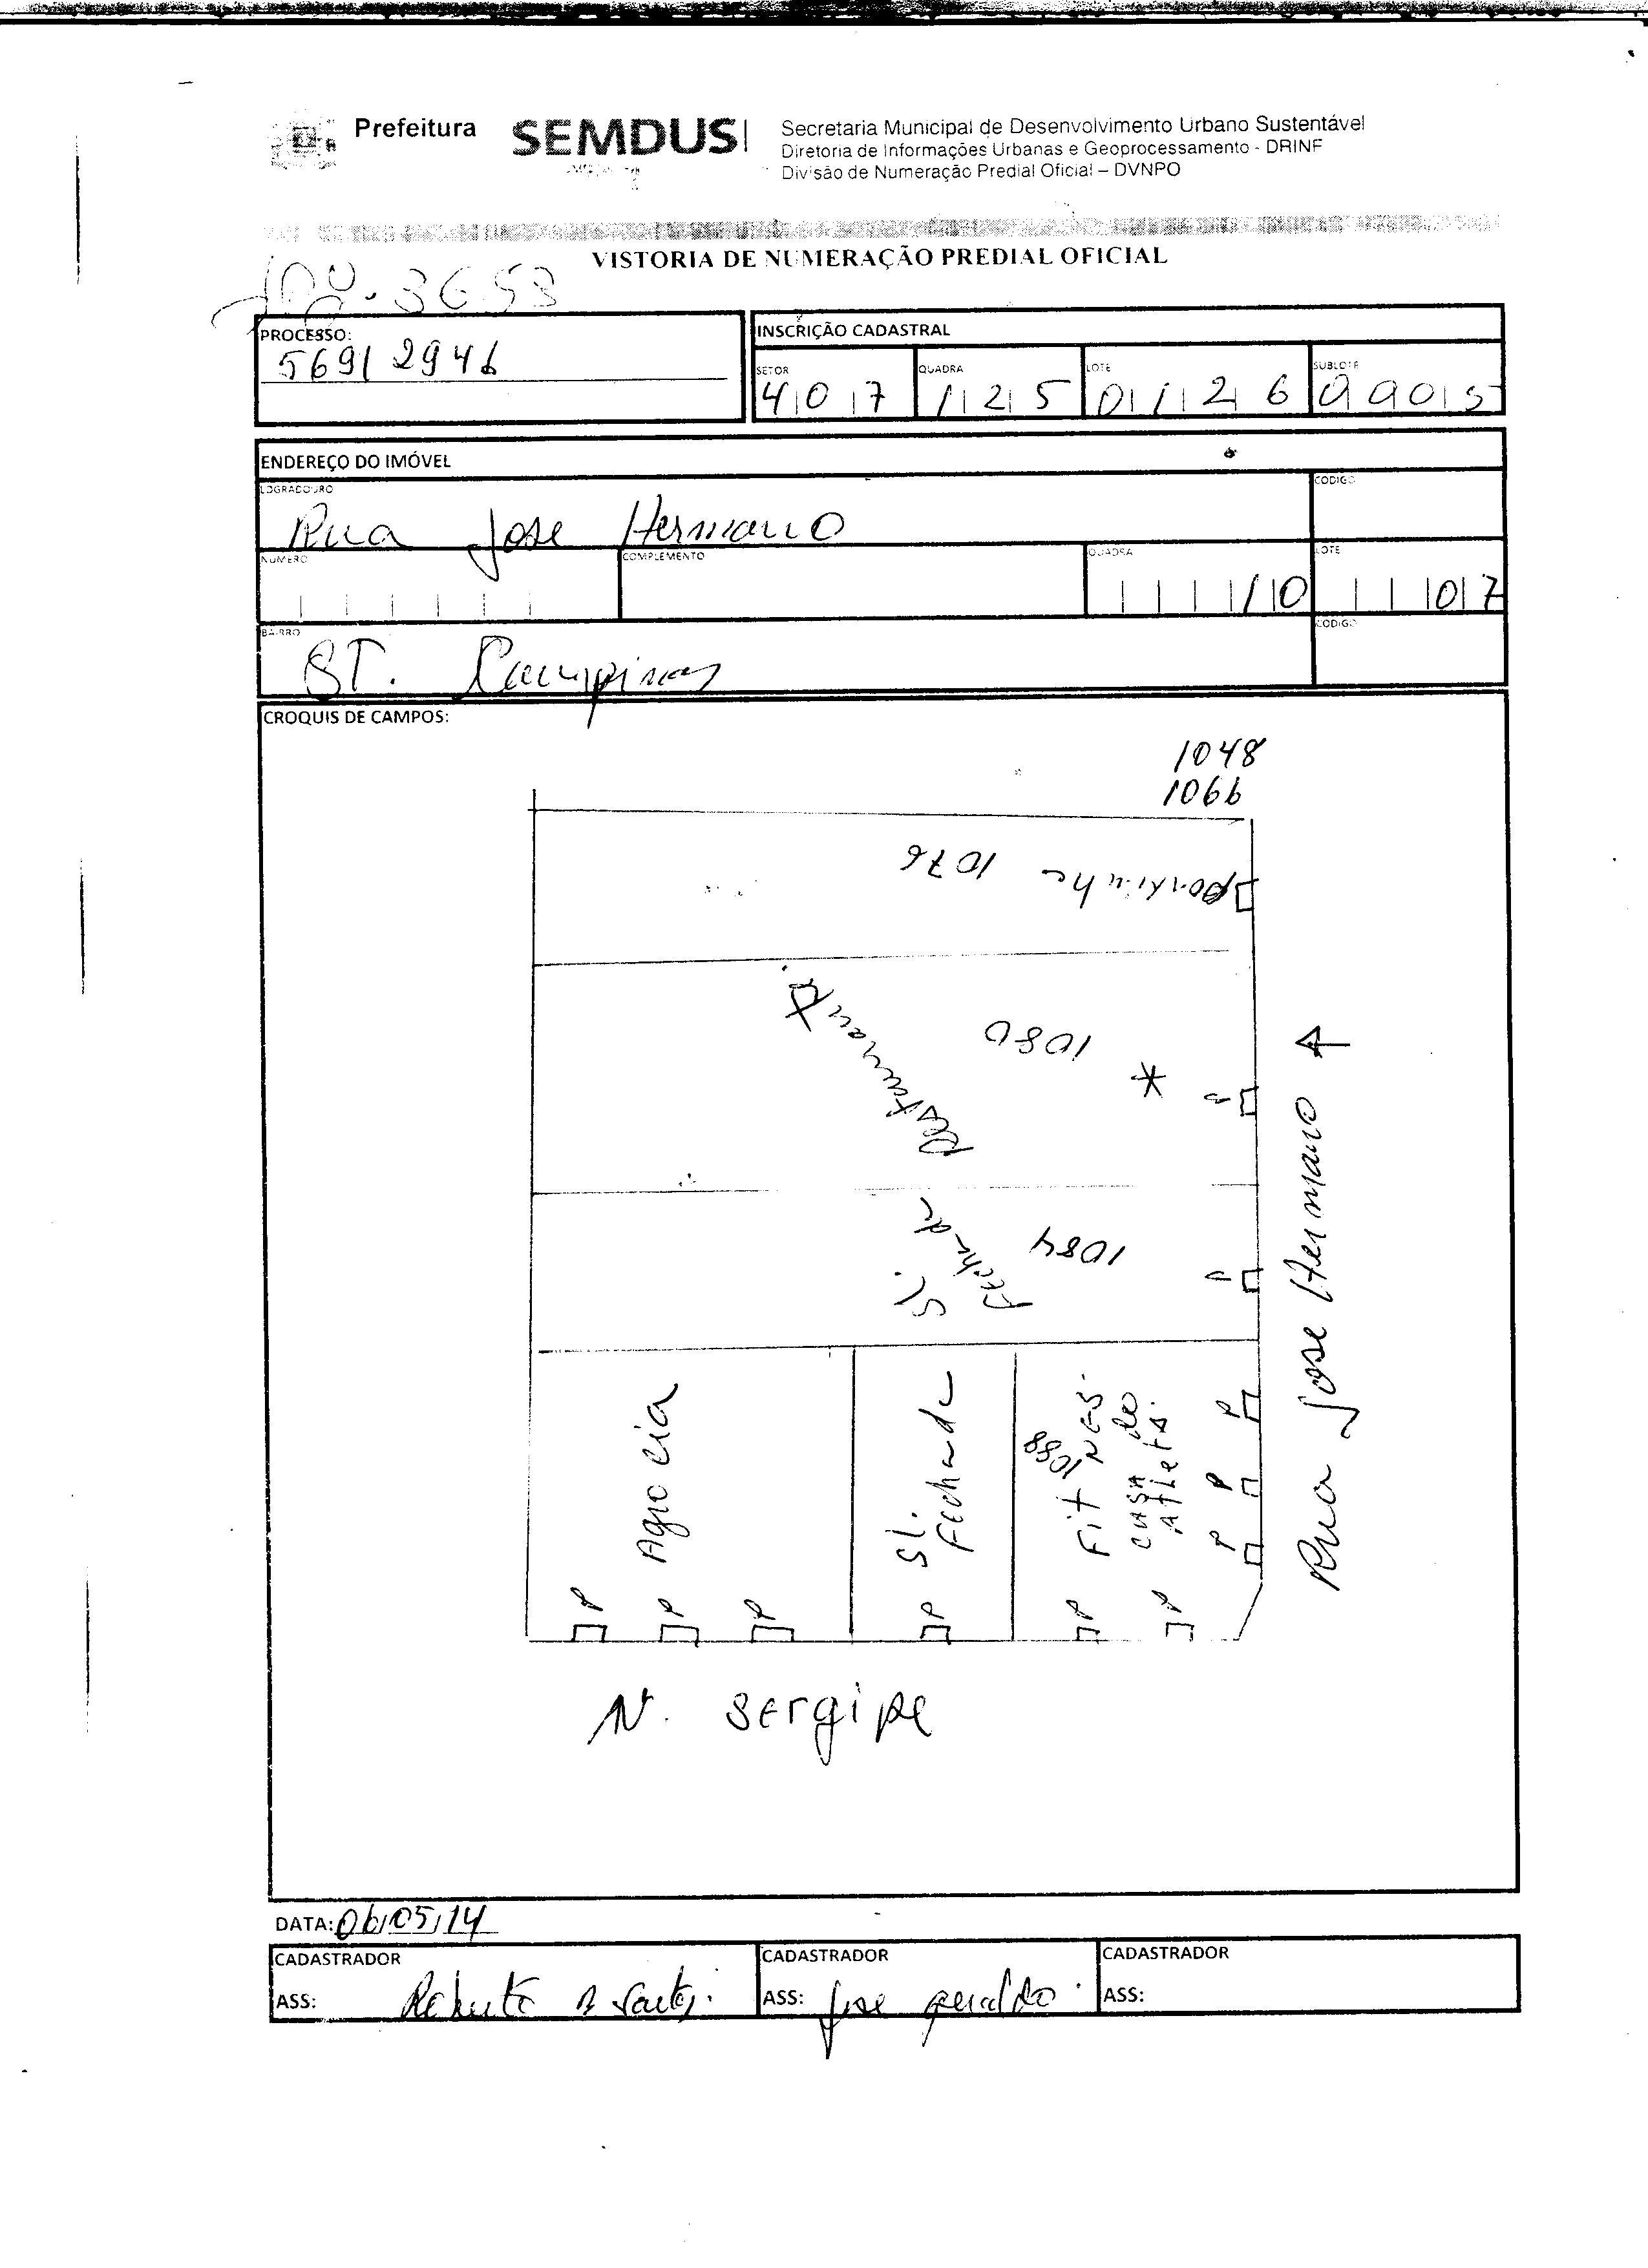 Prefeitura
SEMDUS
Secretaria Municipal de Desenvolvimento Urbano Sustentável
Diretoria de Informações Urbanas e Geoprocessamento - DRINF
Divisão de Numeração Predial Oficial – DVNPO
VISTORIA DE NUMERAÇÃO PREDIAL OFICIAL
3653
PROCESSO:
56912946
INSCRIÇÃO CADASTRAL
SETOR QUADRA LOTE SUBLOTE
407 125 0126 0005
ENDEREÇO DO IMÓVEL
LOGRADOURO CODIGO
Rua Jose Hermano
NUMERO COMPLEMENTO QUADRA LOTE
110 07
BAIRRO CODIGO
ST. Campinas
CROQUIS DE CAMPOS:
1048
1066
1076
portinha
Restaurante
1080
*
Sl.
Fechada
1084
Agro cia
Sl.
Fechada
1088
FitNES
CASA do
Atleta.
P P P
P P P P P P
Rua Jose Hermano
Sergipe
DATA: 06/05/14
CADASTRADOR CADASTRADOR CADASTRADOR
ASS: ASS: Jose geraldo ASS: